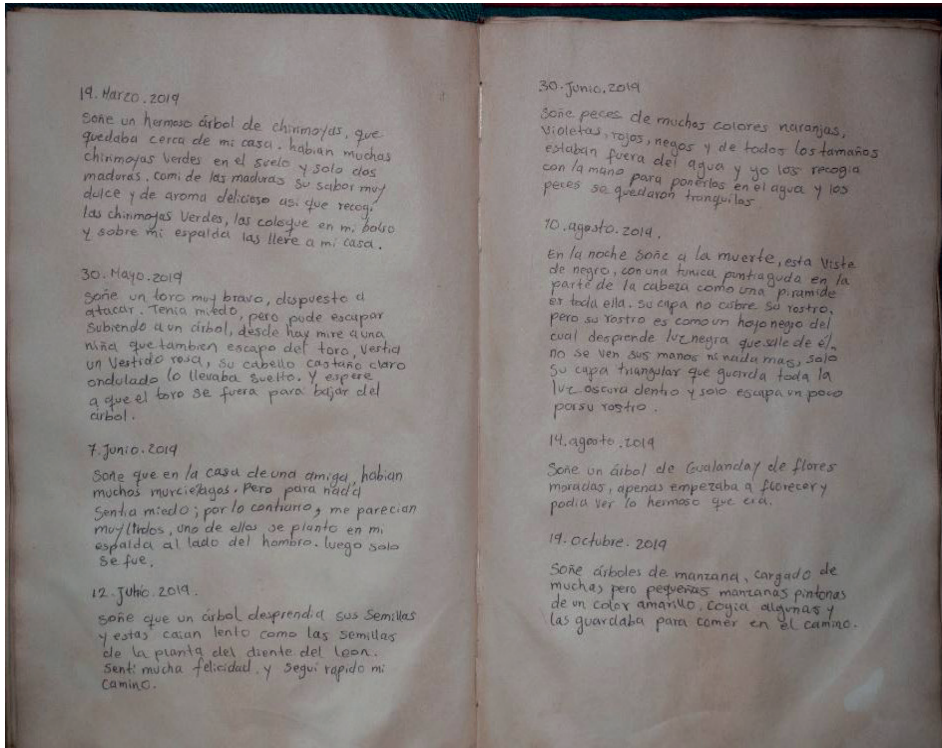 19. Marzo. 2019
Soñe un hermoso árbol de chirimoyas, que
quedaba cerca de mi casa. habian muchas
chirimoyas verdes en el suelo y solo dos
maduras. comi de las maduras su sabor muy
dulce y de aroma delicioso asi que recogi
las chirimoyas Verdes, las coloque en mi bolso
y sobre mi espalda las lleve a mi casa.
30. Mayo. 2019
Soñe un toro muy bravo, dispuesto a
atacar. Tenia miedo, pero pude escapar
subiendo a un árbol, desde hay mire a una
niña que tambien escapo del toro, Vestia
un Vestido rosa, su cabello castaño claro
ondulado lo llevaba suelto. Y espere
a que el toro se fuera para bajar del
árbol.
7. Junio. 2019
Soñe que en la casa de una amiga, habian
muchos murcielagos. Pero para nada
Sentia miedo; por lo contrario, me parecian
muy lindos, uno de ellos se planto en mi
espalda al lado del hombro. luego solo
se fue.
12. Junio. 2019.
soñe que un árbol desprendia sus Semillas
y estas caian lento como las semillas
de la planta del diente del leon.
Senti mucha felicidad. y segui rapido mi
camino.
30. Junio. 2019
Soñe peces de muchos colores naranjas,
Violetas, rojos, negos y de todos los tamaños
estaban fuera del agua y yo los recogia
con la mano para ponerlos en el agua y los
peces se quedaron tranquilos
10. agosto. 2019.
En la noche Soñe a la muerte, esta Viste
de negro, con una tunica puntiaguda en la
parte de la cabeza como una piramide
es toda ella. su capa no cubre su rostro,
pero su rostro es como un hojo negro del
cual desprende luz negra que sale de él.
no se ven sus manos ni nada mas, solo
su capa triangular que guarda toda la
luz oscura dentro y solo escapa un poco
por su rostro.
14. agosto. 2019
Soñe un árbol de Gualanday de flores
moradas, apenas empezaba a florecer y
podia ver lo hermoso que era.
19. Octubre. 2019
Soñe árboles de manzana, cargado de
muchas pero pequeñas manzanas pintonas
de un color amarillo. cogia algunas y
las guardaba para comer en el camino.